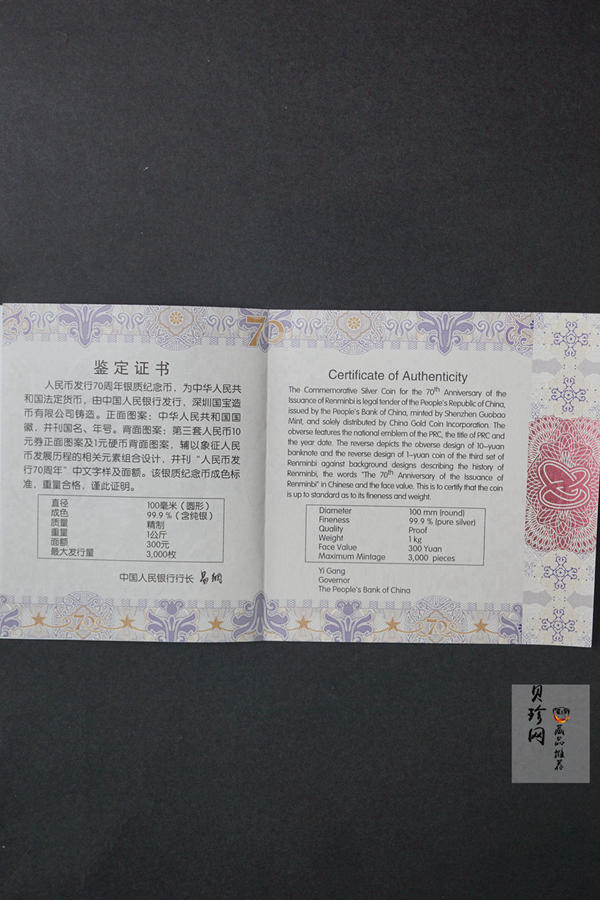 70
鉴定证书
人民币发行70周年银质纪念币，为中华人民共
和国法定货币，由中国人民银行发行，深圳国宝造
币有限公司铸造。正面图案：中华人民共和国国
徽，并刊国名、年号。背面图案：第三套人民币10
元券正面图案及1元硬币背面图案，辅以象征人民
币发展历程的相关元素组合设计，并刊“人民币发
行70周年”中文字样及面额。该银质纪念币成色标
准，重量合格，谨此证明。
直径 100毫米（圆形）
成色 99.9％（含纯银）
质量 精制
重量 1公斤
面额 300元
最大发行量 3,000枚
中国人民银行行长 易纲
Certificate of Authenticity
The Commemorative Silver Coin for the 70th Anniversary of the
Issuance of Renminbi is legal tender of the People's Republic of China,
issued by the People's Bank of China, minted by Shenzhen Guobao
Mint, and solely distributed by China Gold Coin Incorporation. The
obverse features the national emblem of the PRC, the title of PRC and
the year date. The reverse depicts the obverse design of 10-yuan
banknote and the reverse design of 1-yuan coin of the third set of
Renminbi against background designs describing the history of
Renminbi, the words "The 70th Anniversary of the Issuance of
Renminbi" in Chinese and the face value. This is to certify that the coin
is up to standard as to its fineness and weight.
Diameter 100 mm (round)
Fineness 99.9 % (pure silver)
Quality Proof
Weight 1 kg
Face Value 300 Yuan
Maximum Mintage 3,000 pieces
Yi Gang
Governor
The People's Bank of China
70
70
贝珍网
藏品推荐